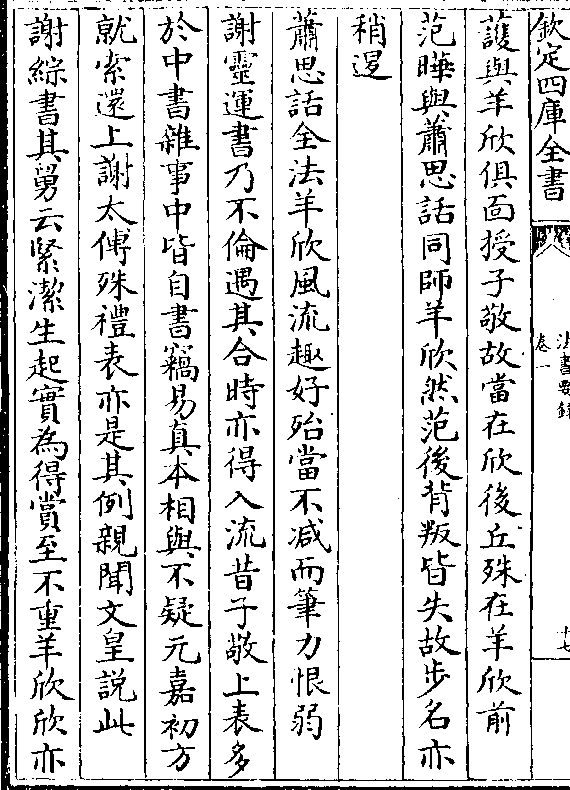 欽定四庫全書
法書要錄
卷一
十七
護與羊欣俱面授子敬故當在欣後丘殊在羊欣前
范曄與蕭思話同師羊欣然范後背叛皆失故步名亦
稍退
蕭思話全法羊欣風流趣好殆當不減而筆力恨弱
謝靈運書乃不倫遇其合時亦得入流昔子敬上表多
於中書雜事中皆自書竊易真本相與不疑元嘉初方
就索還上謝太傅殊禮表亦是其例親聞文皇説此
謝綜書其舅云緊潔生起實為得賞至不重羊欣欣亦